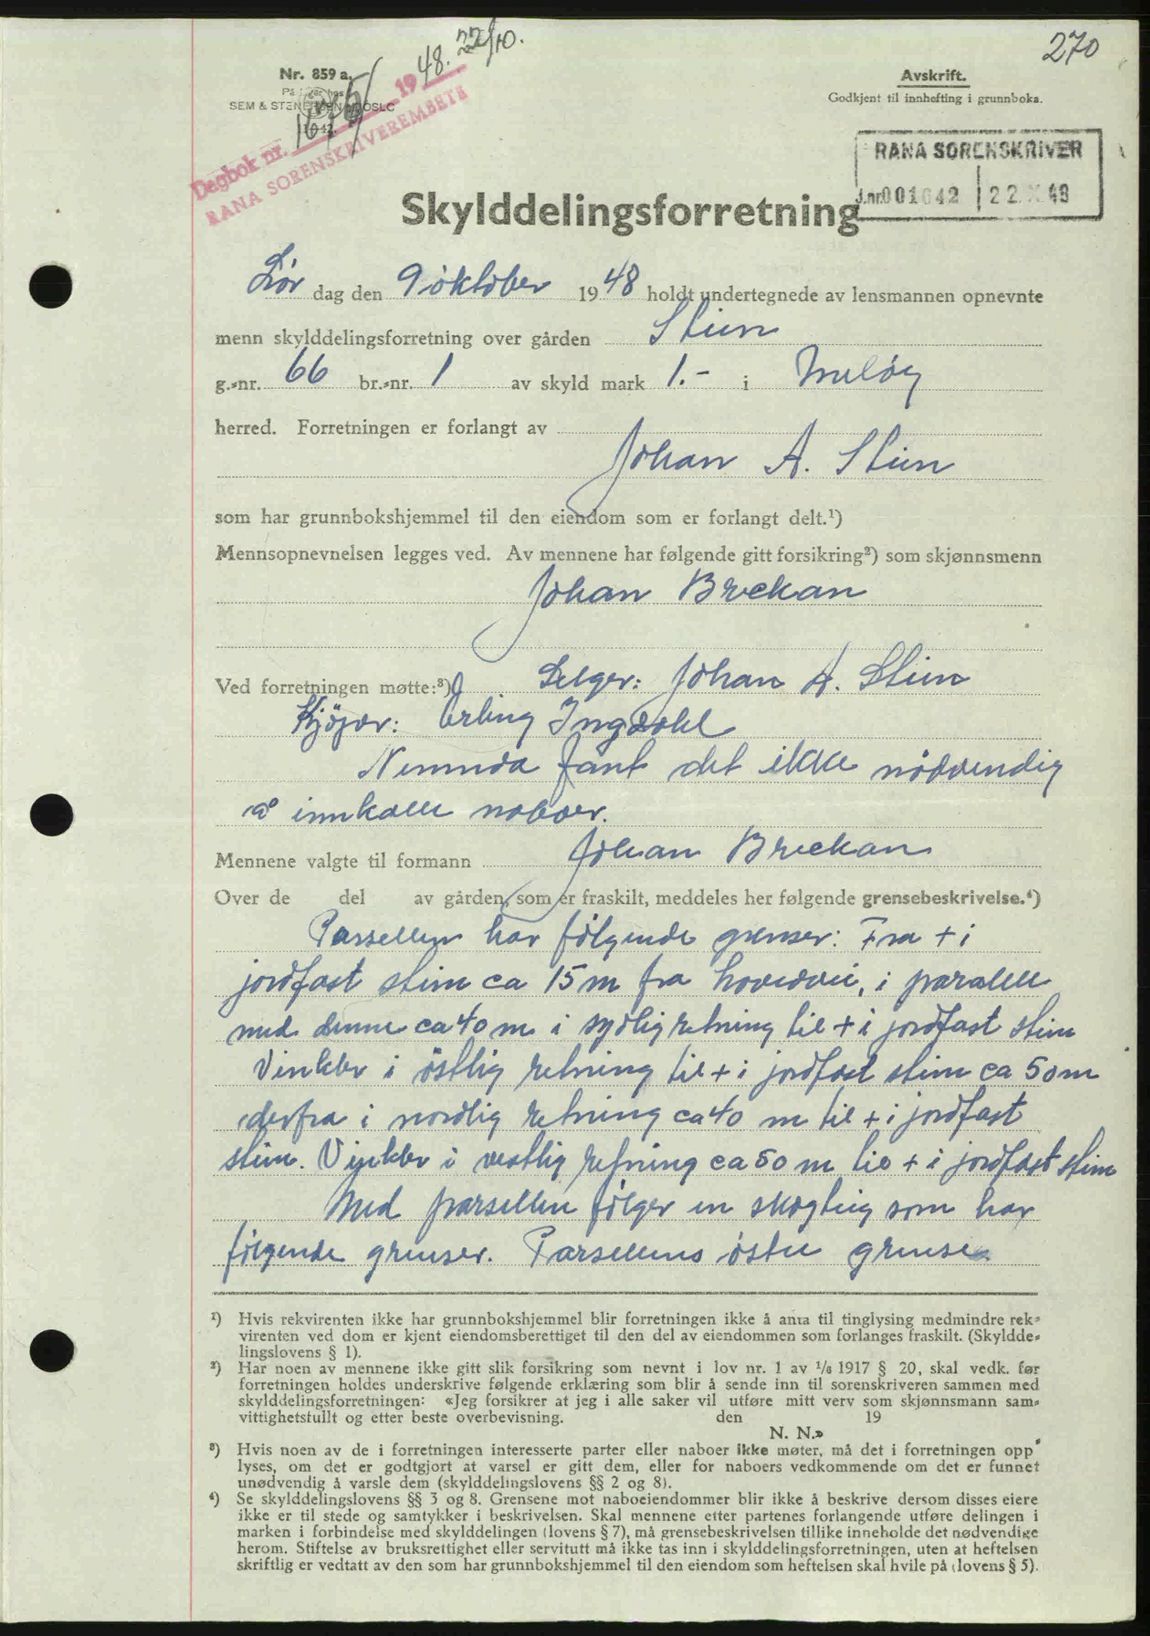 270
48. 22/10.
Nr. 859 a.
SEM & STENERSEN OSLO
Dagbok nr. 1675/ 19
RANA SORENSKRIVEREMBETE
Avskrift.
Godkjent til innhefting i grunnboka.
RANA SORENSKRIVER
J.nr. 001642 22. X. 48
Skylddelingsforretning
Lør dag den 9 oktober 1948 holdt undertegnede av lensmannen opnevnte
menn skylddelingsforretning over gården Stien
g.-nr. 66 br.-nr. 1 av skyld mark 1.- i Meløy
herred. Forretningen er forlangt av
Johan A. Stien
som har grunnbokshjemmel til den eiendom som er forlangt delt.¹)
Mennsopnevnelsen legges ved. Av mennene har følgende gitt forsikring²) som skjønnsmenn
Johan Brekan
Ved forretningen møtte:³) Selger: Johan A. Stien
Kjøper: Erling Ingdahl
Nemnda fant det ikke nödvendig
å innkalle naboer.
Mennene valgte til formann Johan Breckan
Over de del av gården, som er fraskilt, meddeles her følgende grensebeskrivelse.⁴)
Parsellen har fölgende grenser: Fra + i
jordfast stein ca 15 m fra hovedvei, i paralell
med denne ca 40 m i sydlig retning til + i jordfast stein
Vinkler i östlig retning til + i jordfast stein ca 50 m
derfra i nordlig retning ca 40 m til + i jordfast
stein. Vinkler i vestlig retning ca 50 m til + i jordfast stein
Med parsellen fölger en skogteig som har
fölgende grenser. Parsellens östre grense
¹) Hvis rekvirenten ikke har grunnbokshjemmel blir forretningen ikke å anta til tinglysing medmindre rek-
virenten ved dom er kjent eiendomsberettiget til den del av eiendommen som forlanges fraskilt. (Skyldde-
lingslovens § 1).
²) Har noen av mennene ikke gitt slik forsikring som nevnt i lov nr. 1 av ¹/₈ 1917 § 20, skal vedk. før
forretningen holdes underskrive følgende erklæring som blir å sende inn til sorenskriveren sammen med
skylddelingsforretningen: «Jeg forsikrer at jeg i alle saker vil utføre mitt verv som skjønnsmann sam-
vittighetsfullt og etter beste overbevisning. den 19
N. N.»
³) Hvis noen av de i forretningen interesserte parter eller naboer ikke møter, må det i forretningen opp-
lyses, om det er godtgjort at varsel er gitt dem, eller for naboers vedkommende om det er funnet
unødvendig å varsle dem (skylddelingslovens §§ 2 og 8).
⁴) Se skylddelingslovens §§ 3 og 8. Grensene mot naboeiendommer blir ikke å beskrive dersom disses eiere
ikke er til stede og samtykker i beskrivelsen. Skal mennene etter partenes forlangende utføre delingen i
marken i forbindelse med skylddelingen (lovens § 7), må grensebeskrivelsen tillike inneholde det nødvendige
herom. Stiftelse av bruksrettighet eller servitutt må ikke tas inn i skylddelingsforretningen, uten at heftelsen
skriftlig er vedtatt av den som har grunnbokshjemmel til den eiendom som heftelsen skal hvile på (lovens § 5).